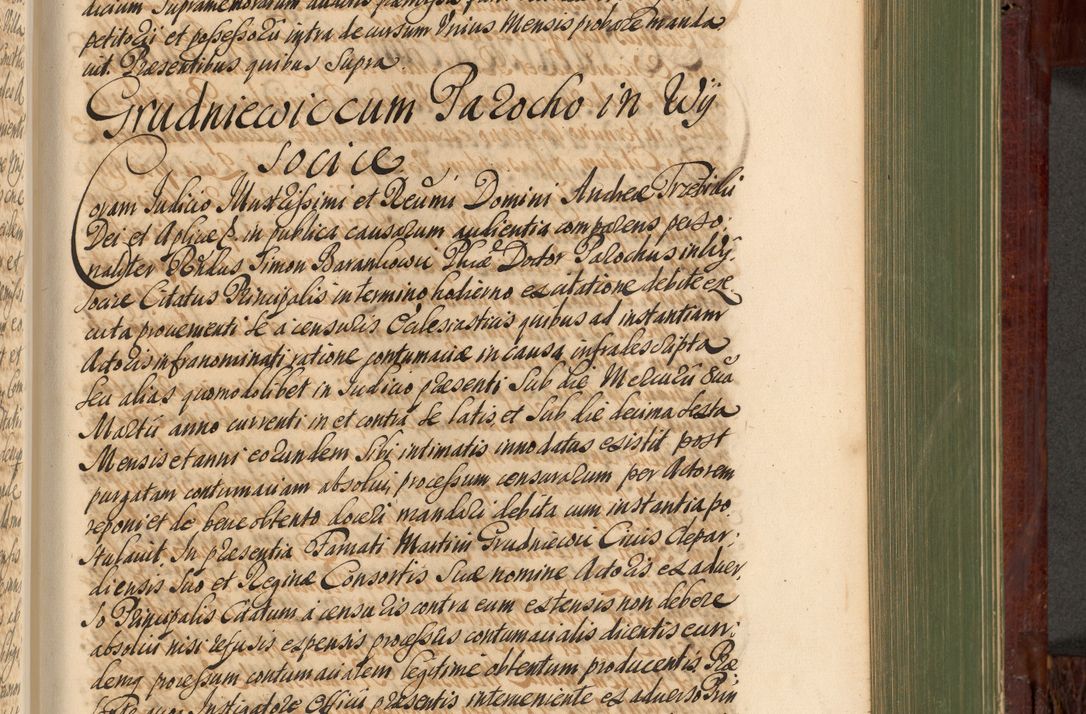 petitorii et possessorii intra decursum Unius Mensis probare manda
vit. Præsentibus quibus Supra.
Grudniewic cum Parocho in Wÿ
socice
Coram Judicio Illustrissimi et Reverendissimi Domini Andreæ Trzebicki
Dei et Aplicæ &c in publica causarum audientia comparens perso-
naliter Rndus Simon Barankowic Phiæ Doctor Parochus in Wÿ-
socice Citatus Principalis in termino hodierno ex citatione debite ex-
ecuta provenienti se a censuris Ecclesiasticis quibus ad instantiam
Actoris infranominati ratione contumaciæ in causa infrascripta
Seu alias quomodolibet in Judicio præsenti Sub die Mercurii 8va
Martii anno currenti in et contra se latis, et Sub die decima sexta
Mensis et anni eorundem Sibi intimatis innodatus existit post
purgatam contumaciam absolvi, processum censurarum per Actorem
reponi et de bene obtento doceri mandari debita cum instantia po
stulavit. In præsentia Famati Martini Grudniewic Civis
diensis Suo et Reginæ Consortis Suæ nomine Actoris ex adver
so Principalis Citatum a censuris contra eum extensis non debere
absolvi nisi refusis expensis processus contumacialis dicentis eun-
demq processum contumacialem legitime obtentum producentis Præ
Instigatore Officii præsentis interveniente ex adverso Prin